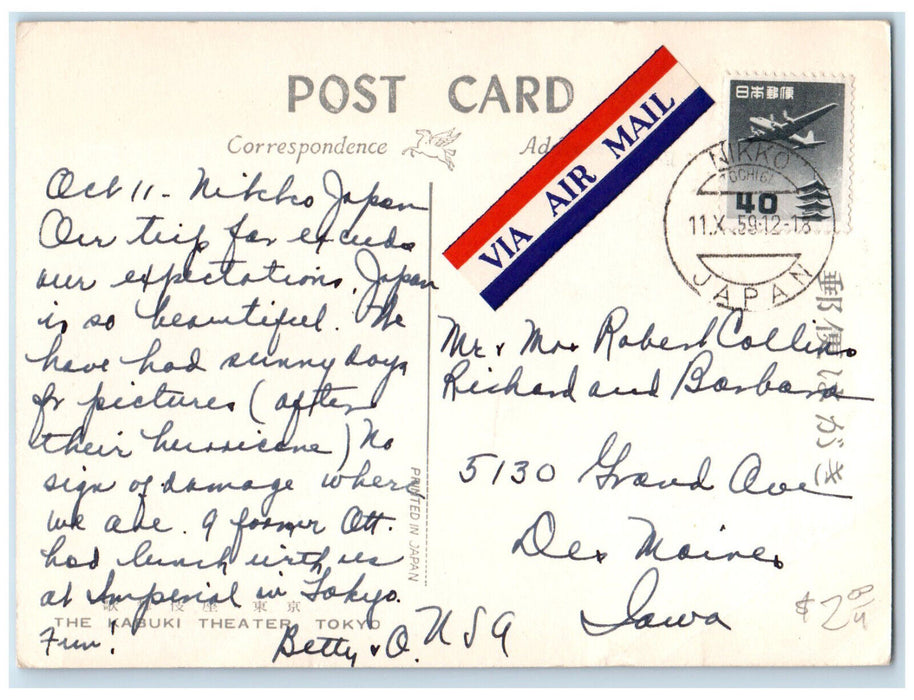 POST CARD
Correspondence
Ad
VIA AIR MAIL
日本郵便
40
NIKKO
TOCHIGI
11.X.59.12-18
JAPAN
郵便はがき
Oct 11 - Nikko Japan
Our trip far exceeds
our expectations. Japan
is so beautiful. We
have had sunny days
for pictures (after
their hurricane) No
sign of damage where
we are. 9 former Ott.
had lunch with us
at Imperial in Tokyo.
Fun!
Betty & O.
Mr & Mrs Robert Collins
Richard and Barbara
5130 Grand Ave
Des Moines
Iowa
USA
PRINTED IN JAPAN
歌舞伎座 東京
THE KABUKI THEATER, TOKYO
$2.00